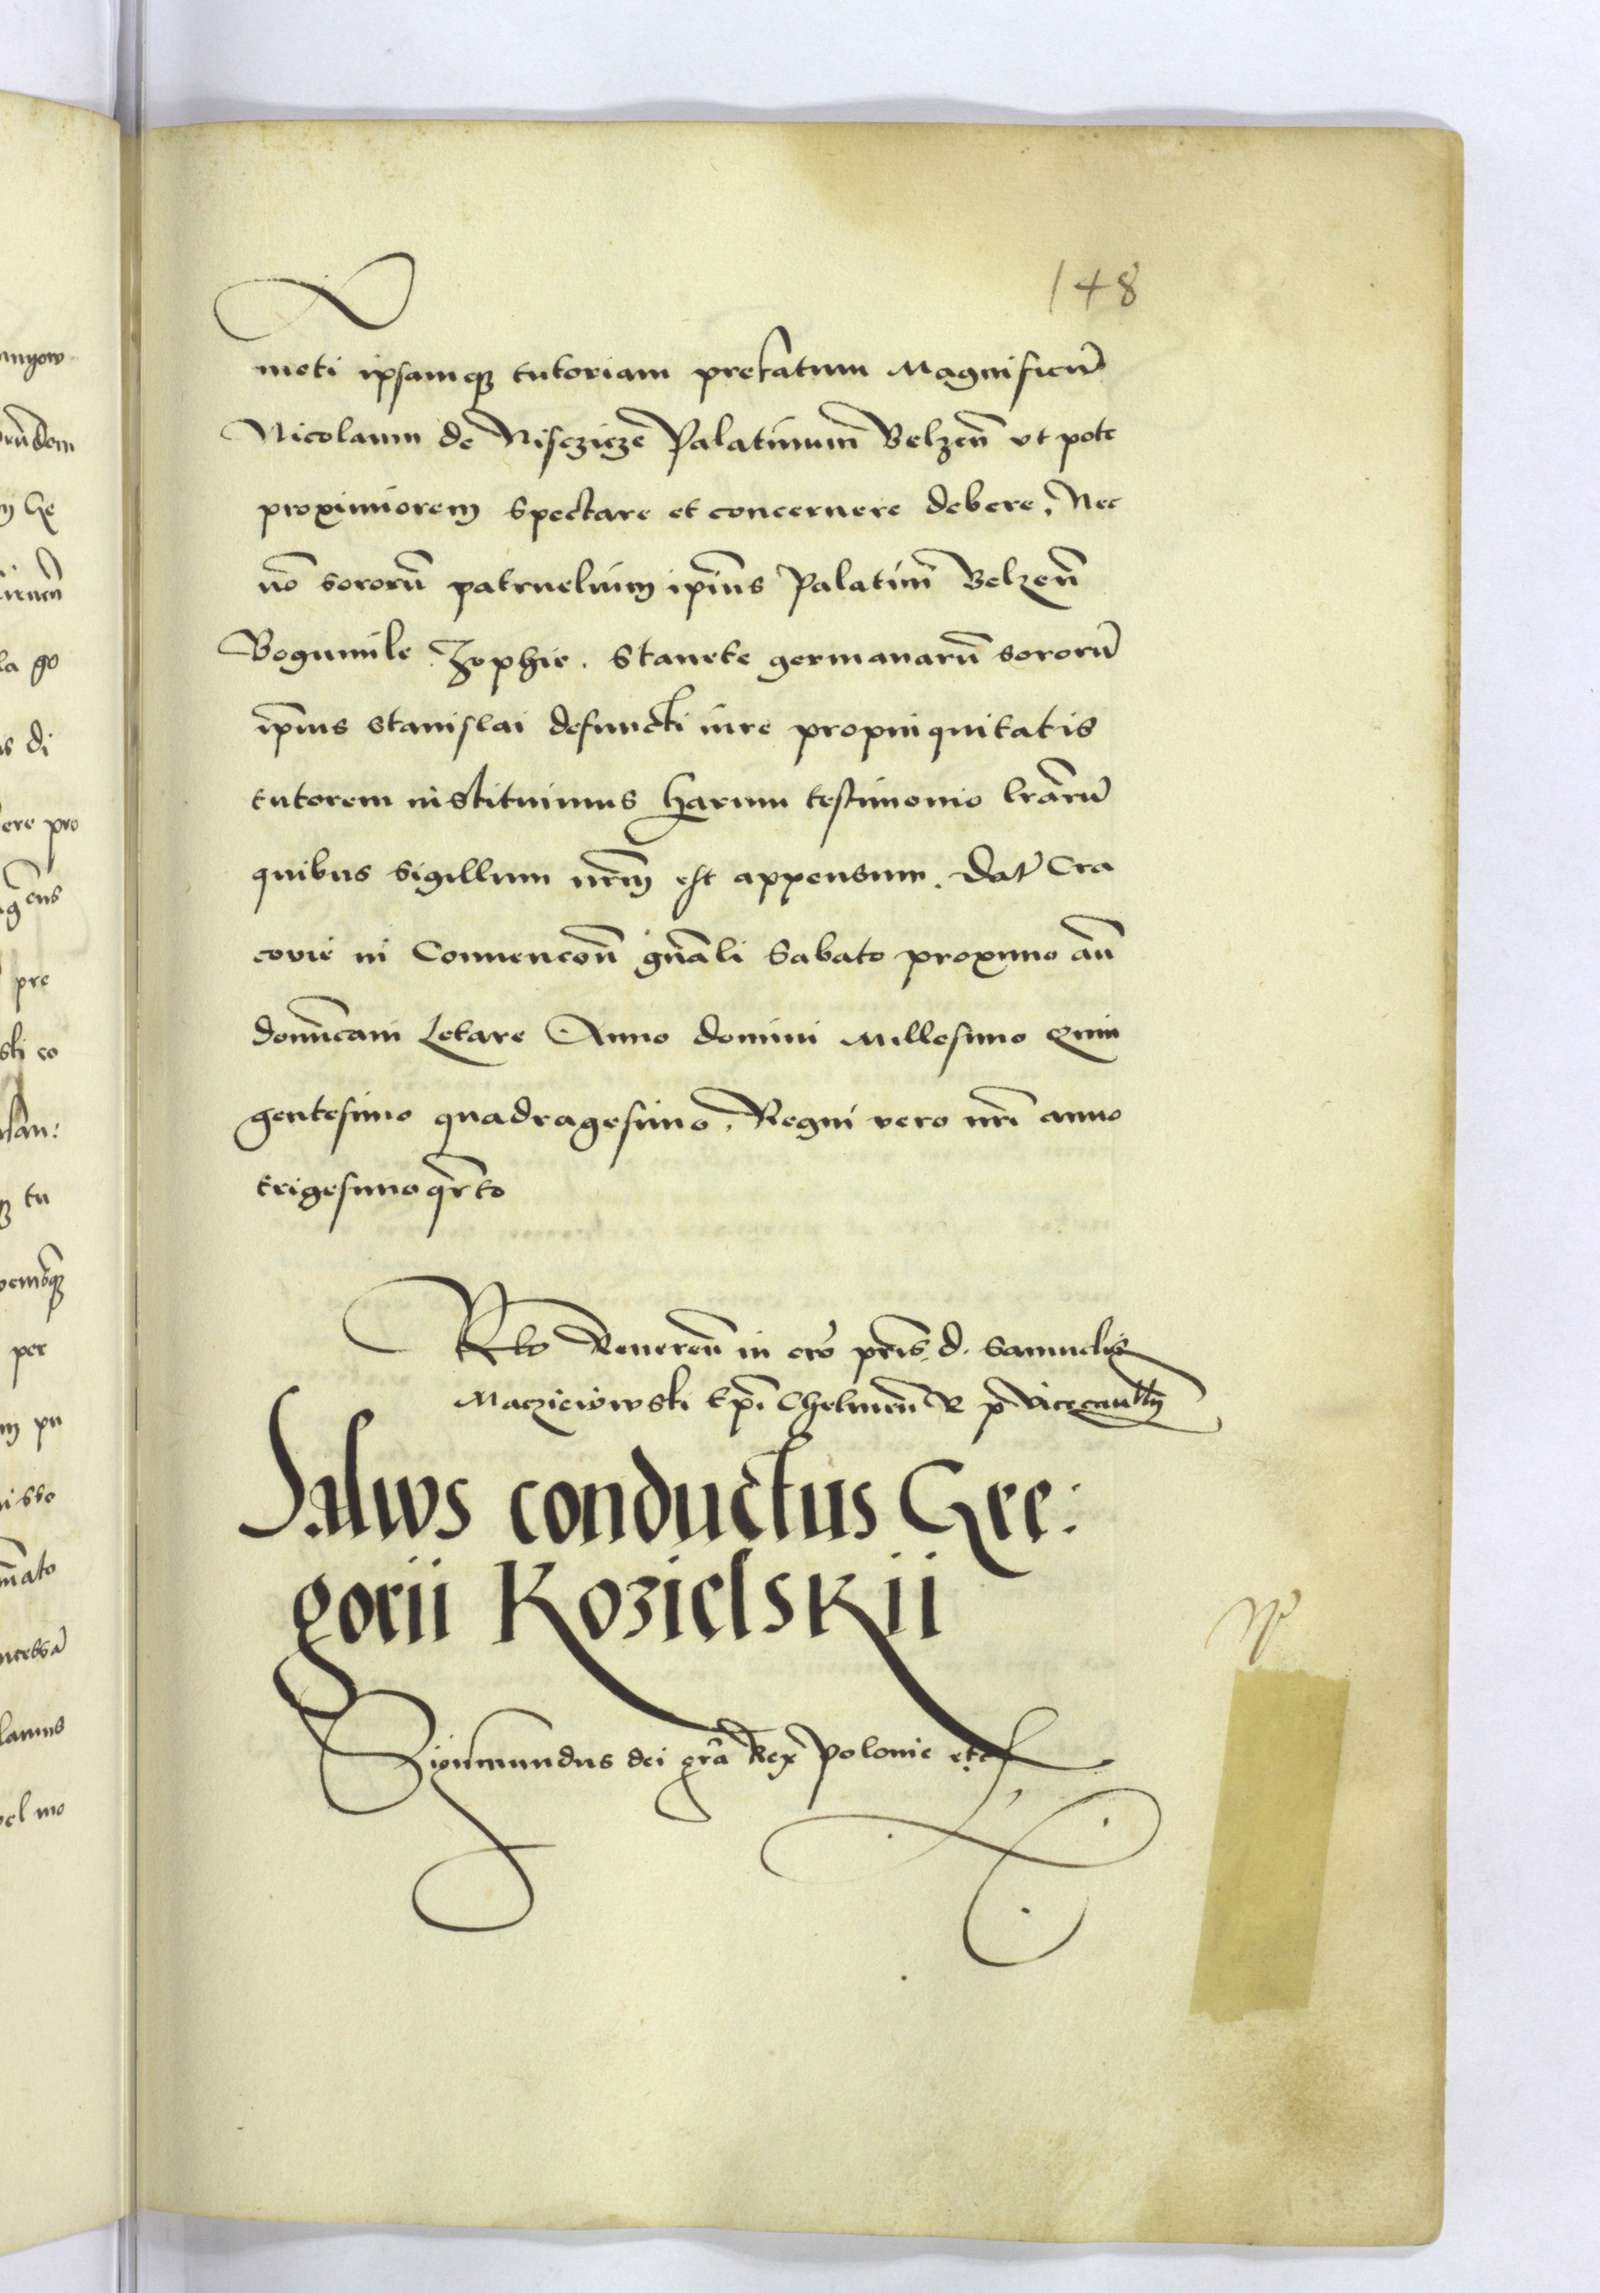 148
moti ipsamq̃ tutoriam prefatum Magnificũ
Nicolaum de Nisczicze Palatinum Belzeñ ut pote
proximiorem spectare et concernere debere, Nec
nõ sororũ patruelium ip̃ius Palatini Belzeñ
Bogumile. Zophie. Stanete germanarũ sororũ
ip̃ius Stanislai defuncti iure propinquitatis
tutorem instituimus harum testimonio lr̃arũ
quibus sigillum nr̃m est appensum. Dat̃ Cra
covie in Convencoñ gñali Sabato proximo añ
domĩcam Letare Anno domini Millesimo quin
gentesimo quadragesimo. Regni vero nr̃i anno
trigesimo qr̃to
Rlo Revereñ in cr̃o pr̃is d. Samuelis
Maczieiowski Ep̃i Chelmeñ R p̃ Vicecancllr̃
Salws conductus Gre:
gorii Kozielskii
Sigismundus dei gr̃a Rex Polonie etc